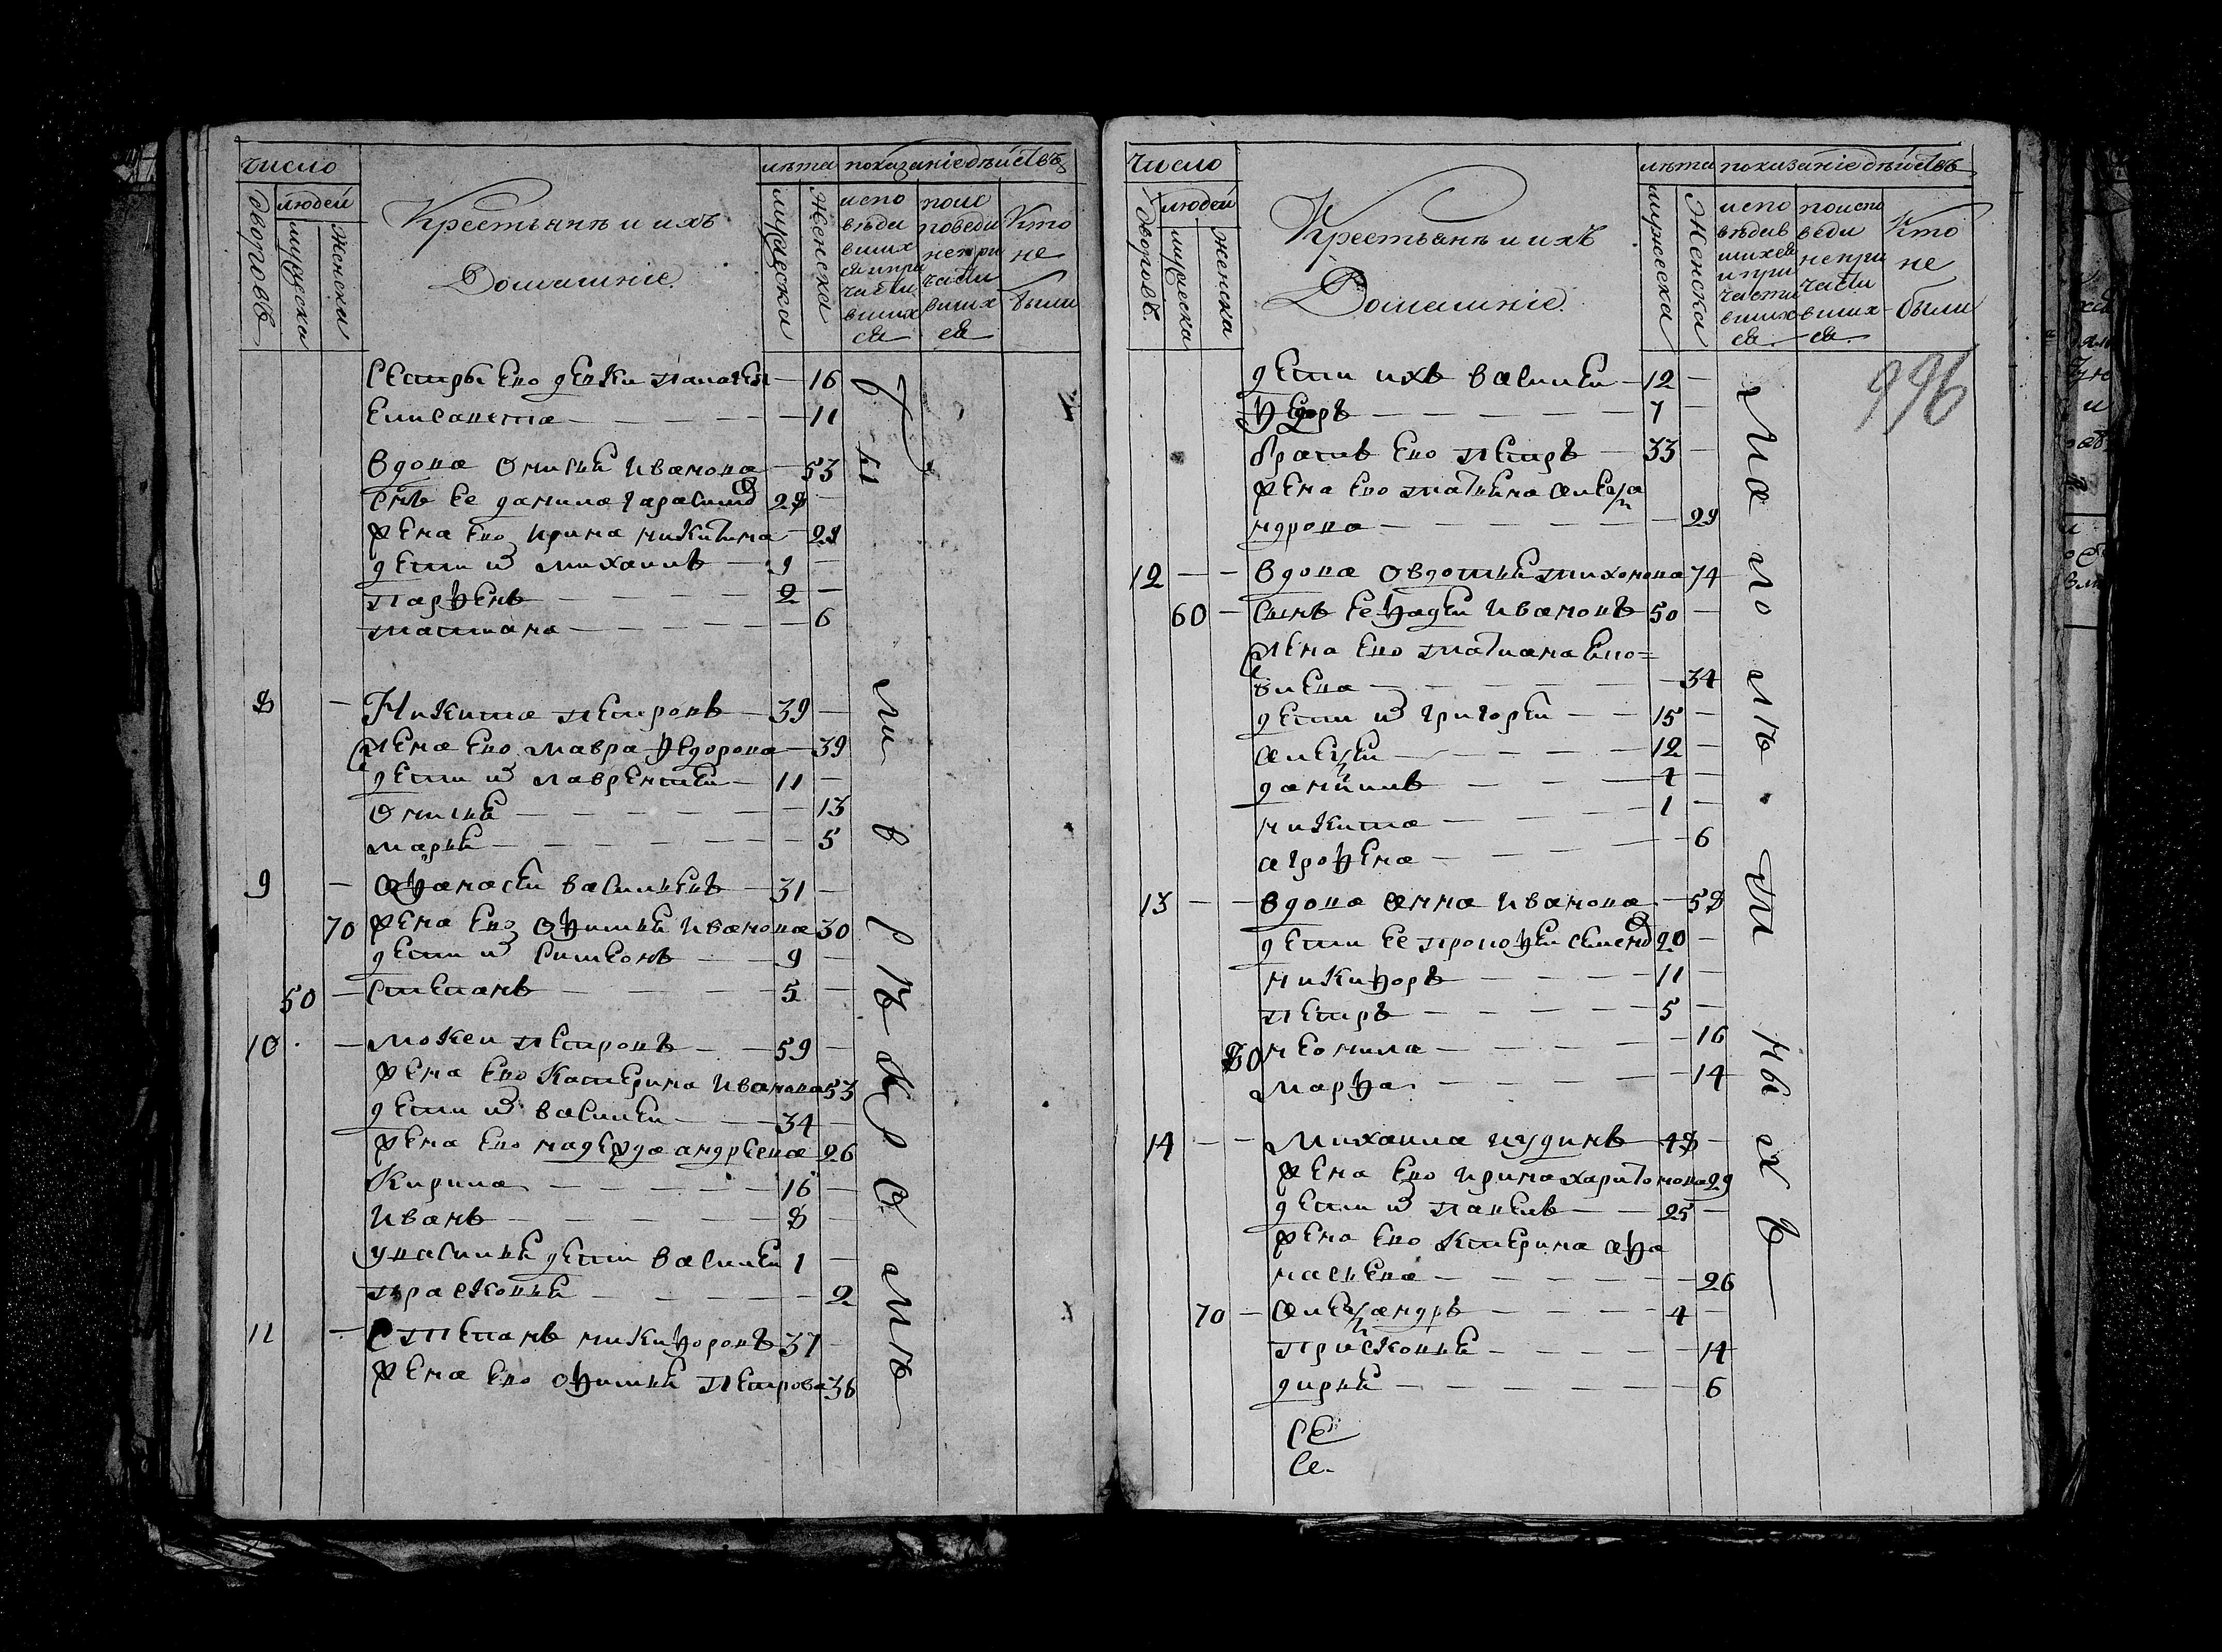 число
дворовъ
людей
мужеска
женска
Крестьянѣ и ихъ
Домашнiе.
лѣта
мужеска
женска
показанiе дѣйствъ
испо
вѣди
вших
ся и при
части
вших
ся
поис
поведи
непри
части
вших
ся
Кто
не
были
сестры ево девки палагея — 16
елисавета — — — — — 11
вдова офимья иванова — 53
снъ ее данила гарасимо 28 —
жена ево ирина никитина — 28
дети их михаилъ — 9 —
парфенъ — — — 2 —
татиана — — — — — 6
8 — Никита петровъ — 39 —
жена ево мавра федорова — 39
дети их лаврентеи — 11 —
офимья — — — — — 13
марья — — — — — 5
9 — афанасеи васильевъ — 31 —
70 жена ево офимья иванова 30
дети их симеонъ — — 9 —
50 — степанъ — — — 5 —
10 — мокеи петровъ — — 59 —
жена ево катерина иванова 53
дети их василеи — — 34 —
жена ево надежда андреева 26
кирила — — — — 16 —
иванъ — — — — 8 —
у василья дети василеи 1 —
прасковья — — — — — 2
11 — степанъ никифоровъ 37 —
жена ево офимья петрова 36
были в церквѣ
число
дворовъ.
людей
мужеска
женска
Крестьянѣ и ихъ
Домашнiе.
лѣта
мужеска
женска
показанiе дѣйствъ
испо
вѣдив
шихся
и при
части
вших
ся
поиспо
веди
непри
части
вших
ся
Кто
не
были
996
дети ихъ василеи — 12 —
федоръ — — — — — 7 —
братъ ево петръ — 33 —
жена ево татиана алекса
ндрова — — — — — 29
12 — — вдова овдотья тихонова 74
60 — сынъ ее фадеи ивановъ 50 —
жена ево татиана
— — — — — 34
дети их григореи — — 15 —
алексеи — — — — 12 —
данiилъ — — — 4 —
никита — — — 1 —
агрофена — — — — 6
13 — — вдова анна иванова — 58
дети ее прокофеи семено 20 —
никифоръ — — — 11 —
петръ — — — — 5 —
80 неонила — — — — 16
марфа — — — — 14
14 — — михаила июдинъ — 48 —
жена ево ирина харитонова 29
дети их павелъ — — 25 —
жена ево катерина афа
насьева — — — — — 26
70 — александръ — — — 4 —
прасковья — — — — 14
дарья — — — — — 6
се
се